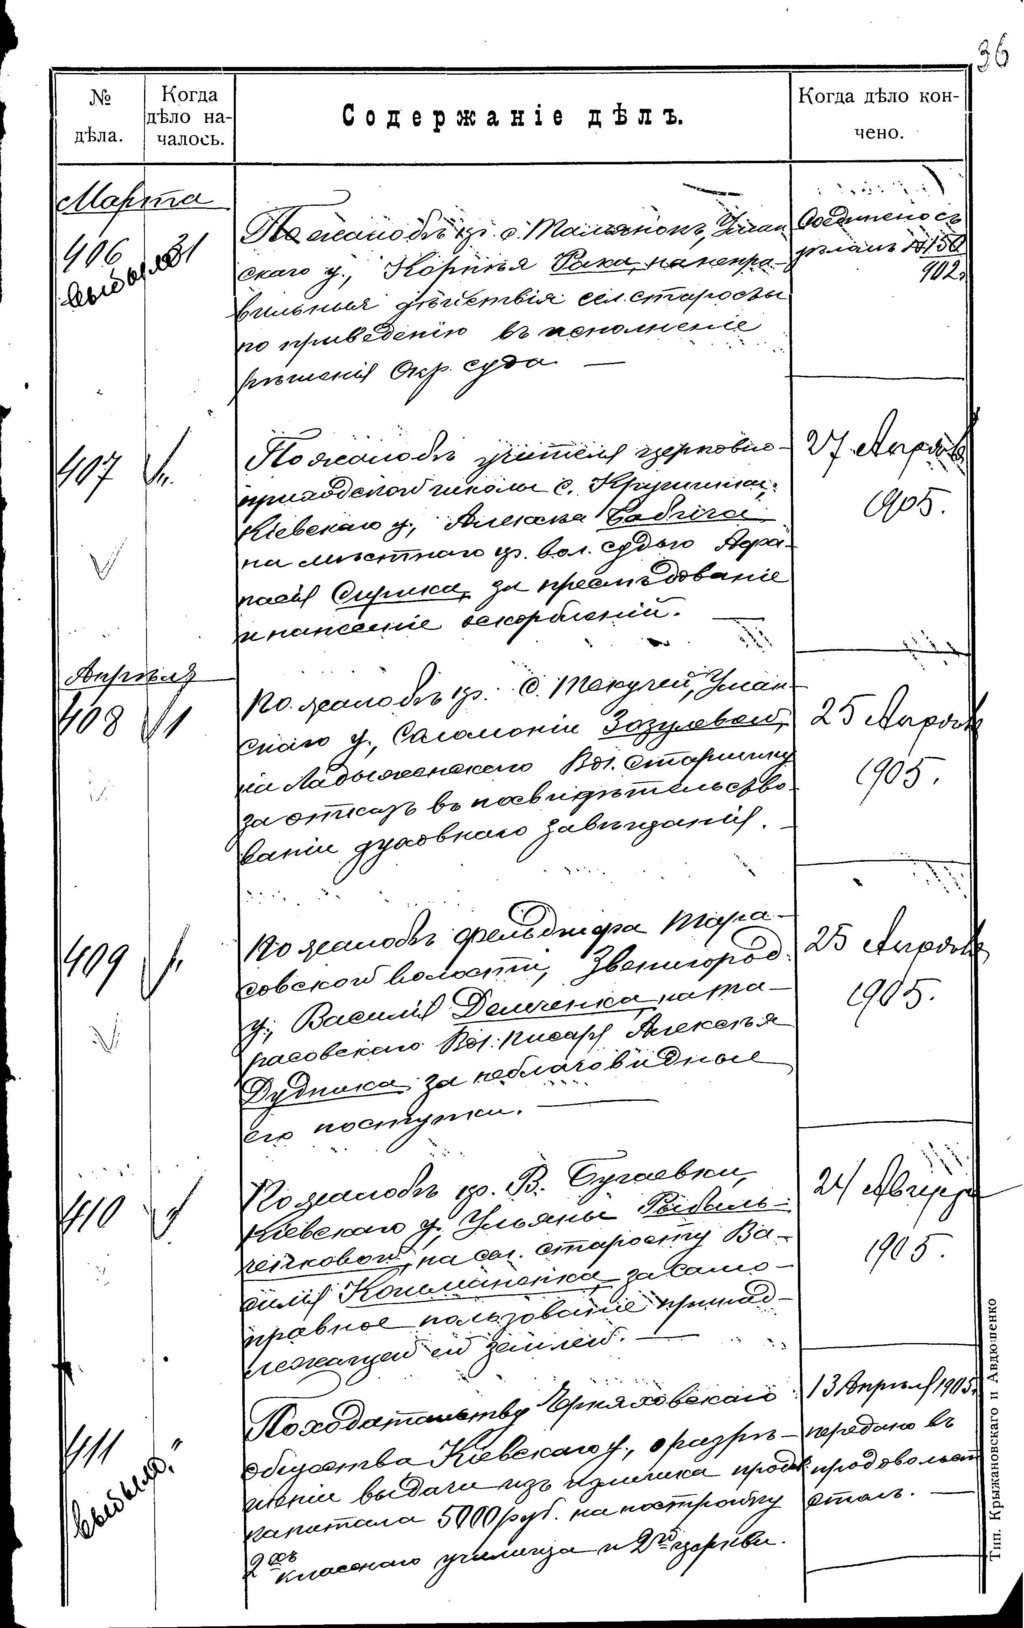 36
№ дѣла.
Когда дѣло на-
чалось.
Содержаніе дѣлъ.
Когда дѣло кон-
чено.
Марта
406
выбыло
31
По жалобѣ кр. с. Тальянокъ, Уман
скаго у., Корнѣя Рака, на непра-
вильныя дѣйствія сел. старосты
по приведенію въ исполненіе
рѣшенія Окр. суда —
Соединено съ
дѣломъ № 150
902 г.
407
По жалобѣ учителя церковно-
приходской школы с. Кру
Кіевскаго у., Алексѣя Бабича
на мѣстнаго кр. вол. судью Афа-
насія Сирика, за преслѣдованіе
и нанесеніе оскорбленій. —
27 Апрѣля
1905.
Апрѣля
408
1
По жалобѣ кр. с. Текучей, Уман-
скаго у., Саломоніи Зозулевой,
на Ладыженскаго Вол. старшину
за отказъ въ посвидѣтельство-
ваніи духовнаго завѣщанія. —
25 Апрѣля
1905.
409
По жалобѣ фельдшера Тара-
совской волости, Звенигород.
у., Василія Демченка, на та-
расовскаго Вол. писаря Алексѣя
Дудника, за неблаговидные
его поступки. —
25 Апрѣля
1905.
410
По жалобѣ кр. В. Бугаевки,
Кіевскаго у., Ульяны Рыбаль-
ченковой, на сел. старосту Ва-
силія Кошманенка, за само-
правное пользованіе принад-
лежащей ей землей. —
24 Августа
1905.
411
"
выбыло.
По ходатайству Черняховскаго
общества Кіевскаго у., о разрѣ-
шеніи выдачи изъ излишка прод.
капитала 5000 руб. на постройку
2хъ класснаго училища и 2й церкви.
13 Апрѣля 1905 г.
передано въ
продовольст.
столъ. —
Тип. Крыжановскаго и Авдюшенко